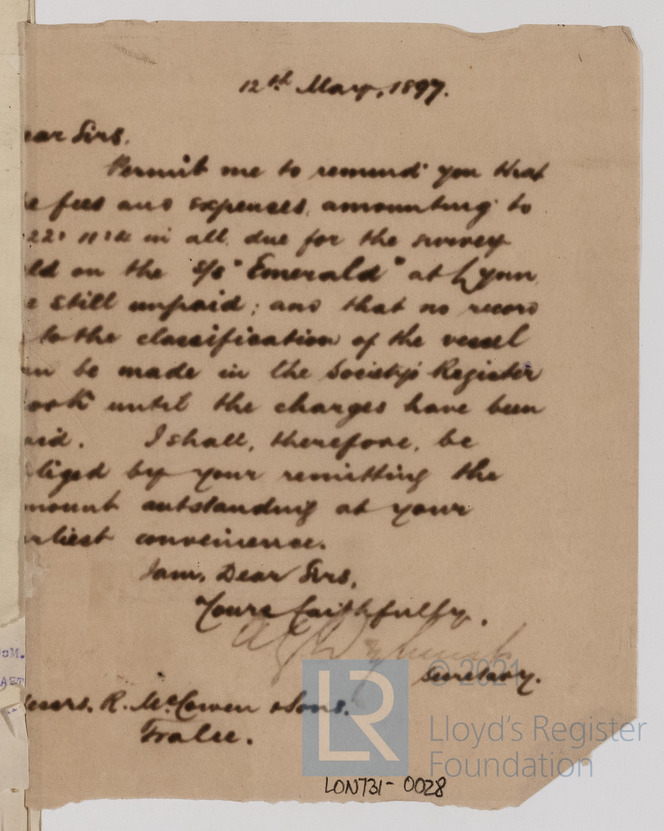 12th May, 1897.
ear Sirs,
Permit me to remind you that
e fees and expenses, amounting to
22: 11: in all, due for the survey
ld on the S/S "Emerald" at Lynn
e still unpaid; and that no record
to the classification of the vessel
an be made in the Society's Register
ook until the charges have been
aid. I shall, therefore, be
liged by your remitting the
mount outstanding at your
rliest convenience.
I am, Dear Sirs,
Yours faithfully,
Secretary.
essrs. R. McCowen & Sons.
Tralee.
© 2021
LR
Lloyd's Register
Foundation
LON731-0028
OM.